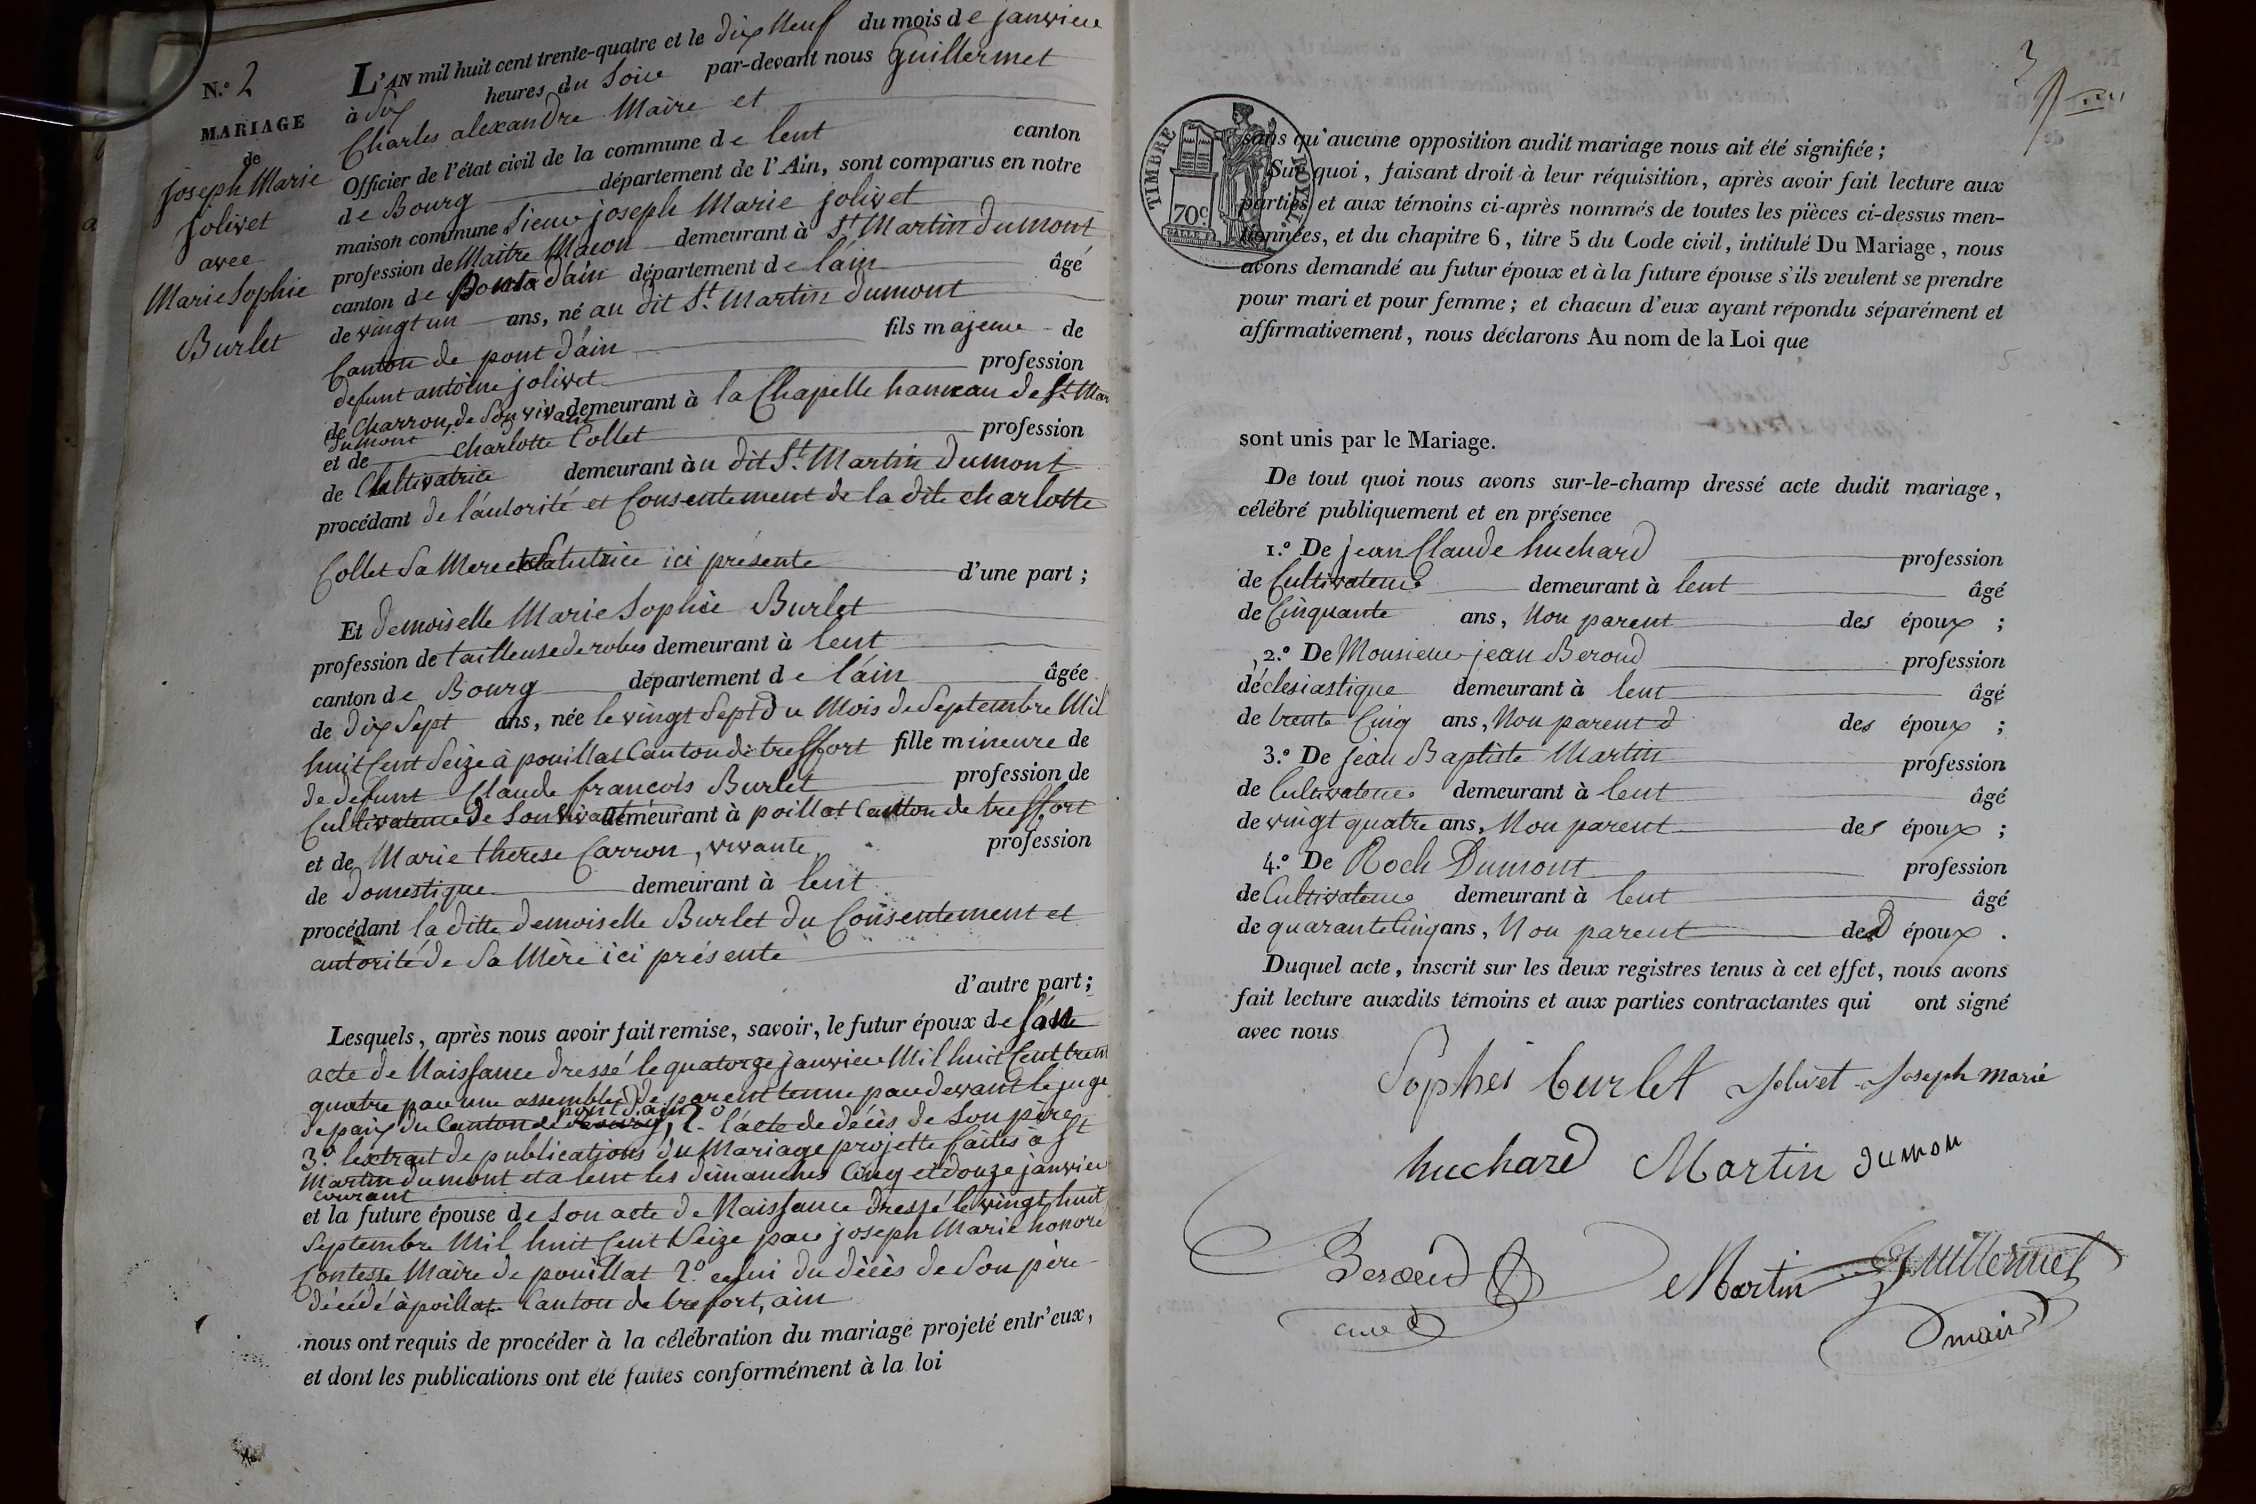 N.° 2
MARIAGE
de
Joseph Marie
Jolivet
avec
Marie Sophie
Burlet
L'AN mil huit cent trente-quatre et le dix Neuf du mois de janvier
à Six heures du Soir par-devant nous Guillermet
Charles alexandre Maire et
Officier de l'état civil de la commune de lent canton
de Bourg département de l'Ain, sont comparus en notre
maison commune Sieur joseph Marie jolivet
profession de Maître Macon demeurant à St Martin Dumont
canton de Pont d'ain département de láin âgé
de vingt un ans, né au dit St. Martin Dumont
Canton de pont d'ain fils majeur de
defunt antoine jolivet profession
de Charron, de Son vivant demeurant à la Chapelle hameau de St. Mar
Dumont
et de Charlotte Collet profession
de Cultivatrice demeurant àu dit St. Martin Dumont
procédant de láutorité et Consentement de la dite charlotte
Collet Sa Mere et Sa tutrice ici présente d'une part ;
Et Demoiselle Marie Sophie Burlet
profession de tailleuse de robes demeurant à lent
canton de Bourg département de láin âgée
de Dix Sept ans, née le vingt Sept du Mois de Septembre Mil
huit Cent Seize à pouillat Canton de treffort fille mineure de
de defunt Claude francois Burlet profession de
Cultivateur de Son vivant demeurant à poillat Canton de treffort
et de Marie therese Carron, vivante, profession
de domestique demeurant à lent
procédant la ditte Demoiselle Burlet du Consentement et
autorité de Sa Mère ici présente
d'autre part ;
Lesquels, après nous avoir fait remise, savoir, le futur époux de
acte de Naissance dressé le quatorze janvier Mil huit Cent trent
quatre par une assemblée de parent tenue par devant le juge
de paix du Canton de pont d'ain, 2.° l'acte de décès de Son père
3.° lextrait de publications du Mariage projetté faites à St
Martin dumont et a lent les dimanches Cinq et douze janvier
Courant
et la future épouse de Son acte de Naissance dressé le vingt huit
Septembre Mil huit Cent Seize par joseph Marie honoré
Contesse Maire de pouillat 2.° celui du décès de Son père
décédé à poillat Canton de trefort, ain
nous ont requis de procéder à la célébration du mariage projeté entr'eux,
et dont les publications ont été faites conformément à la loi
3
TIMBRE ROYAL
70c
sans qu'aucune opposition audit mariage nous ait été signifiée ;
Sur quoi, faisant droit à leur réquisition, après avoir fait lecture aux
parties et aux témoins ci-après nommés de toutes les pièces ci-dessus men-
tionnées, et du chapitre 6, titre 5 du Code civil, intitulé Du Mariage, nous
avons demandé au futur époux et à la future épouse s'ils veulent se prendre
pour mari et pour femme ; et chacun d'eux ayant répondu séparément et
affirmativement, nous déclarons Au nom de la Loi que
sont unis par le Mariage.
De tout quoi nous avons sur-le-champ dressé acte dudit mariage,
célébré publiquement et en présence
1.° De jean Claude huchard profession
de Cultivateur demeurant à lent âgé
de Cinquante ans, Non parent des époux ;
2.° De Monsieur jean Beroud profession
déclesiastique demeurant à lent âgé
de trente Cinq ans, Non parent des époux ;
3.° De jean Baptiste Martin profession
de Cultivateur demeurant à lent âgé
de vingt quatre ans, Non parent des époux ;
4.° De Roch Dumont profession
de Cultivateur demeurant à lent âgé
de quarante Cinq ans, Non parent des époux .
Duquel acte, inscrit sur les deux registres tenus à cet effet, nous avons
fait lecture auxdits témoins et aux parties contractantes qui ont signé
avec nous
Sophei burlet Jolivet Joseph marie
huchard Martin dumon
Beroud Martin Guillermet
curé maire